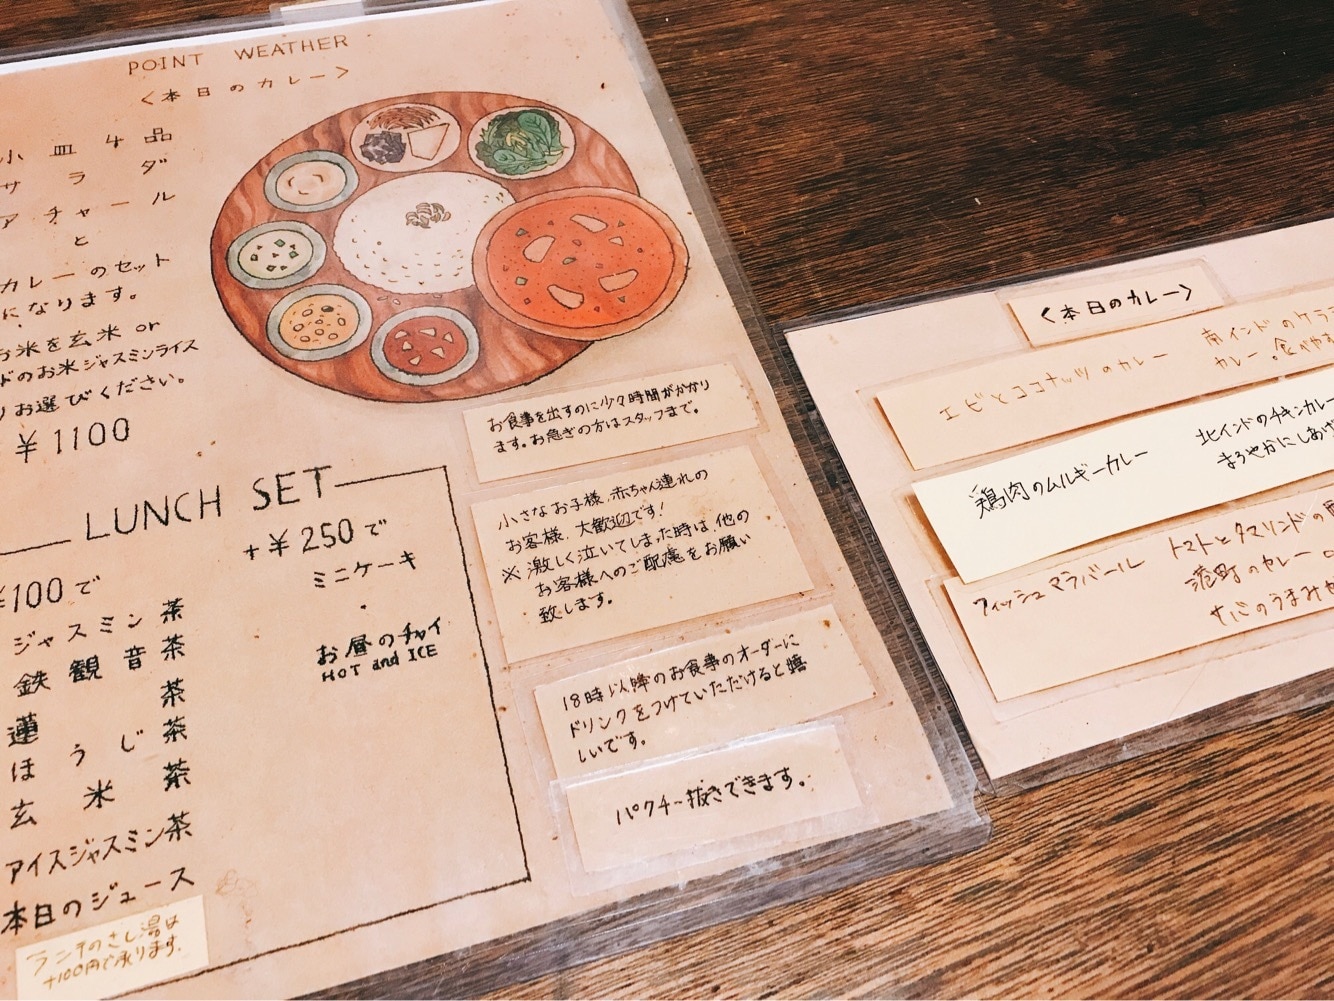 POINT WEATHER
<本日のカレー>
小皿4品
サラダ
アチャール
と
カレーのセット
になります。
お米を玄米 or
ドのお米ジャスミンライス
りお選びください。
¥1100
LUNCH SET
¥100で
ジャスミン茶
鉄観音茶
蓮茶
ほうじ茶
玄米茶
アイスジャスミン茶
本日のジュース
ランチのさし湯は
+100円で承ります。
+¥250で
ミニケーキ
・
お昼のチャイ
HOT and ICE
お食事を出すのに少々時間がかかり
ます。お急ぎの方はスタッフまで。
小さなお子様、赤ちゃん連れの
お客様、大歓迎です!
※激しく泣いてしまった時は、他の
お客様へのご配慮をお願い
致します。
18時以降のお食事のオーダーに
ドリンクをつけていただけると嬉
しいです。
パクチー抜きできます。
<本日のカレー>
エビとココナッツのカレー
南インドのケララ
カレー。食べやす
鶏肉のムルギーカレー
北インドのチキンカレー
まろやかにしあげ
フィッシュマラバール
トマトとタマリンドの
港町のカレー
のうまみ